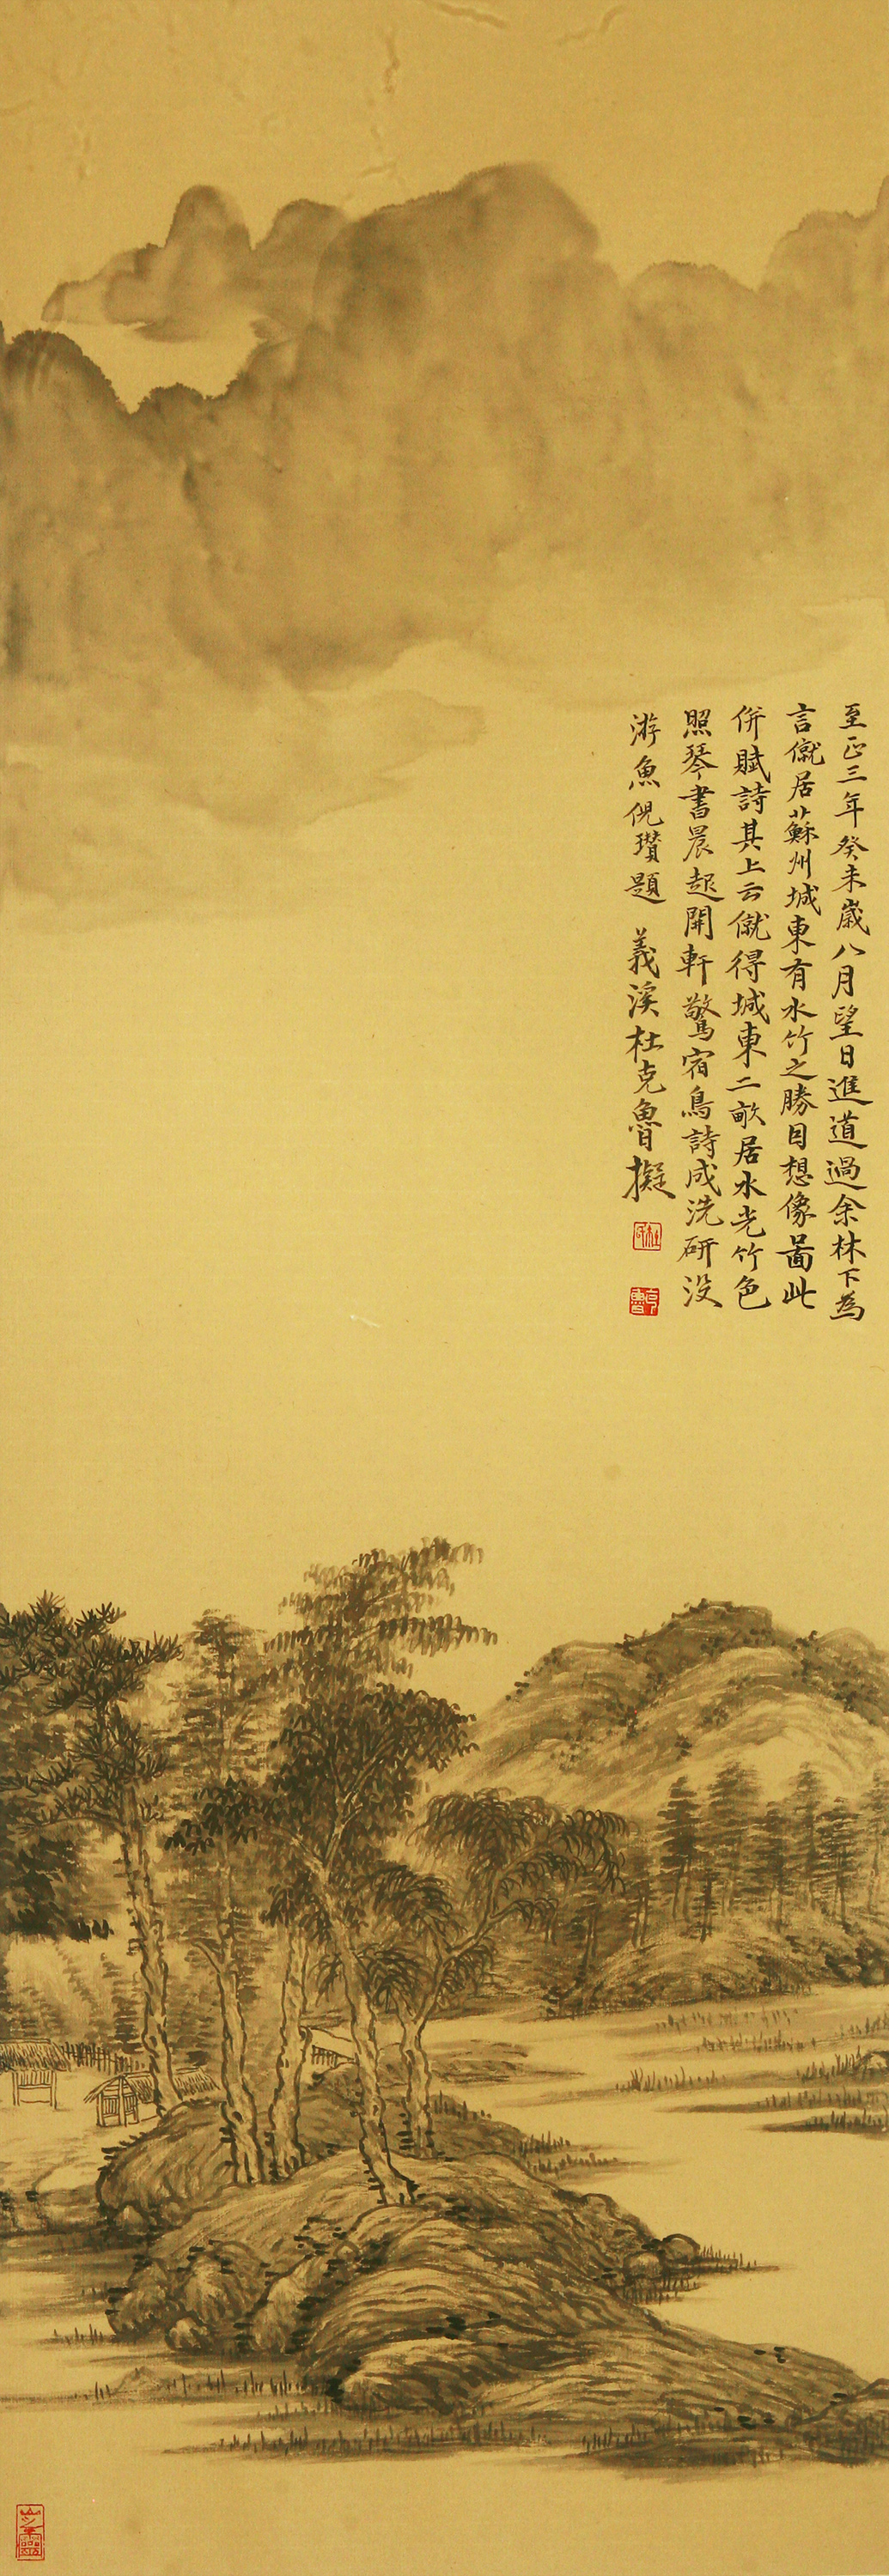 至正三年癸未歲八月望日進道過余林下為
言僦居蘇州城東有水竹之勝目想像啚此
併賦詩其上云僦得城東二畝居水光竹色
照琴書晨起開軒驚宿鳥詩成洗研没
游魚倪瓚題 義溪杜克魯擬
克魯